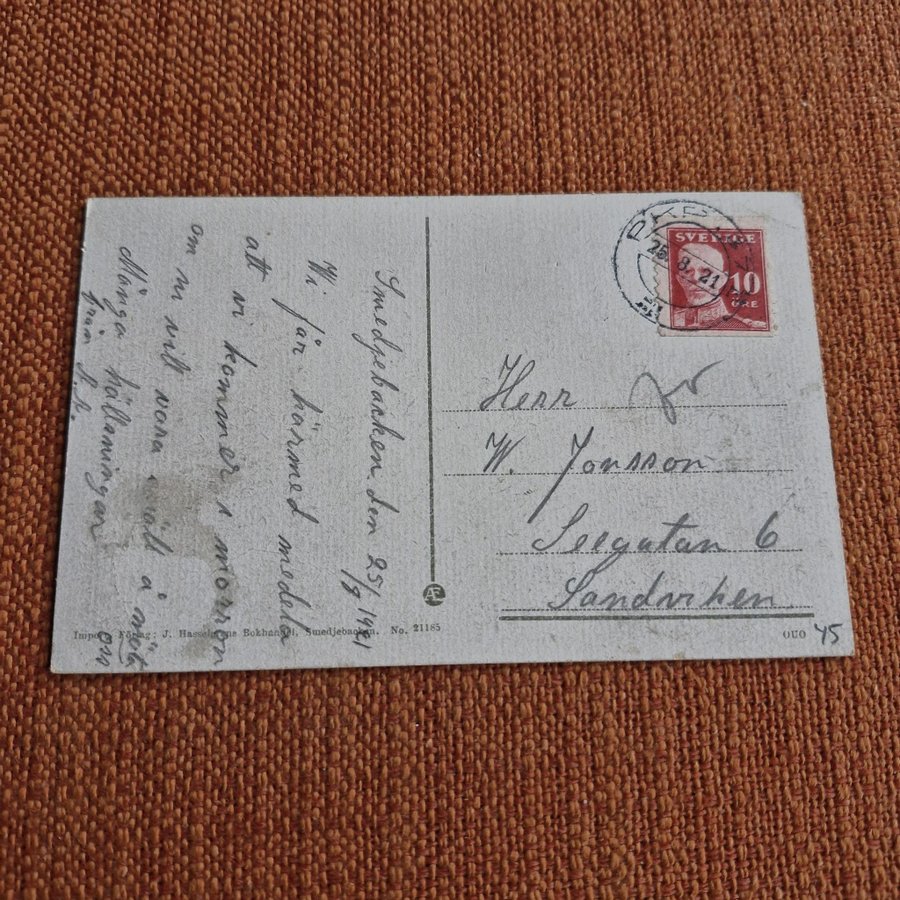 Smedjebacken den 25/8 1921
Vi får härmed medela
att vi kommer i morron
om ni vill vara snäll å möta oss
Många hälsningar
från
SVERIGE
10
ÖRE
25. 8. 21
Herr
W. Jonsson
Seegatan 6
Sandviken
Förlag: J. Bokhandel, Smedjebacken. No. 21185
OUO
45
Æ